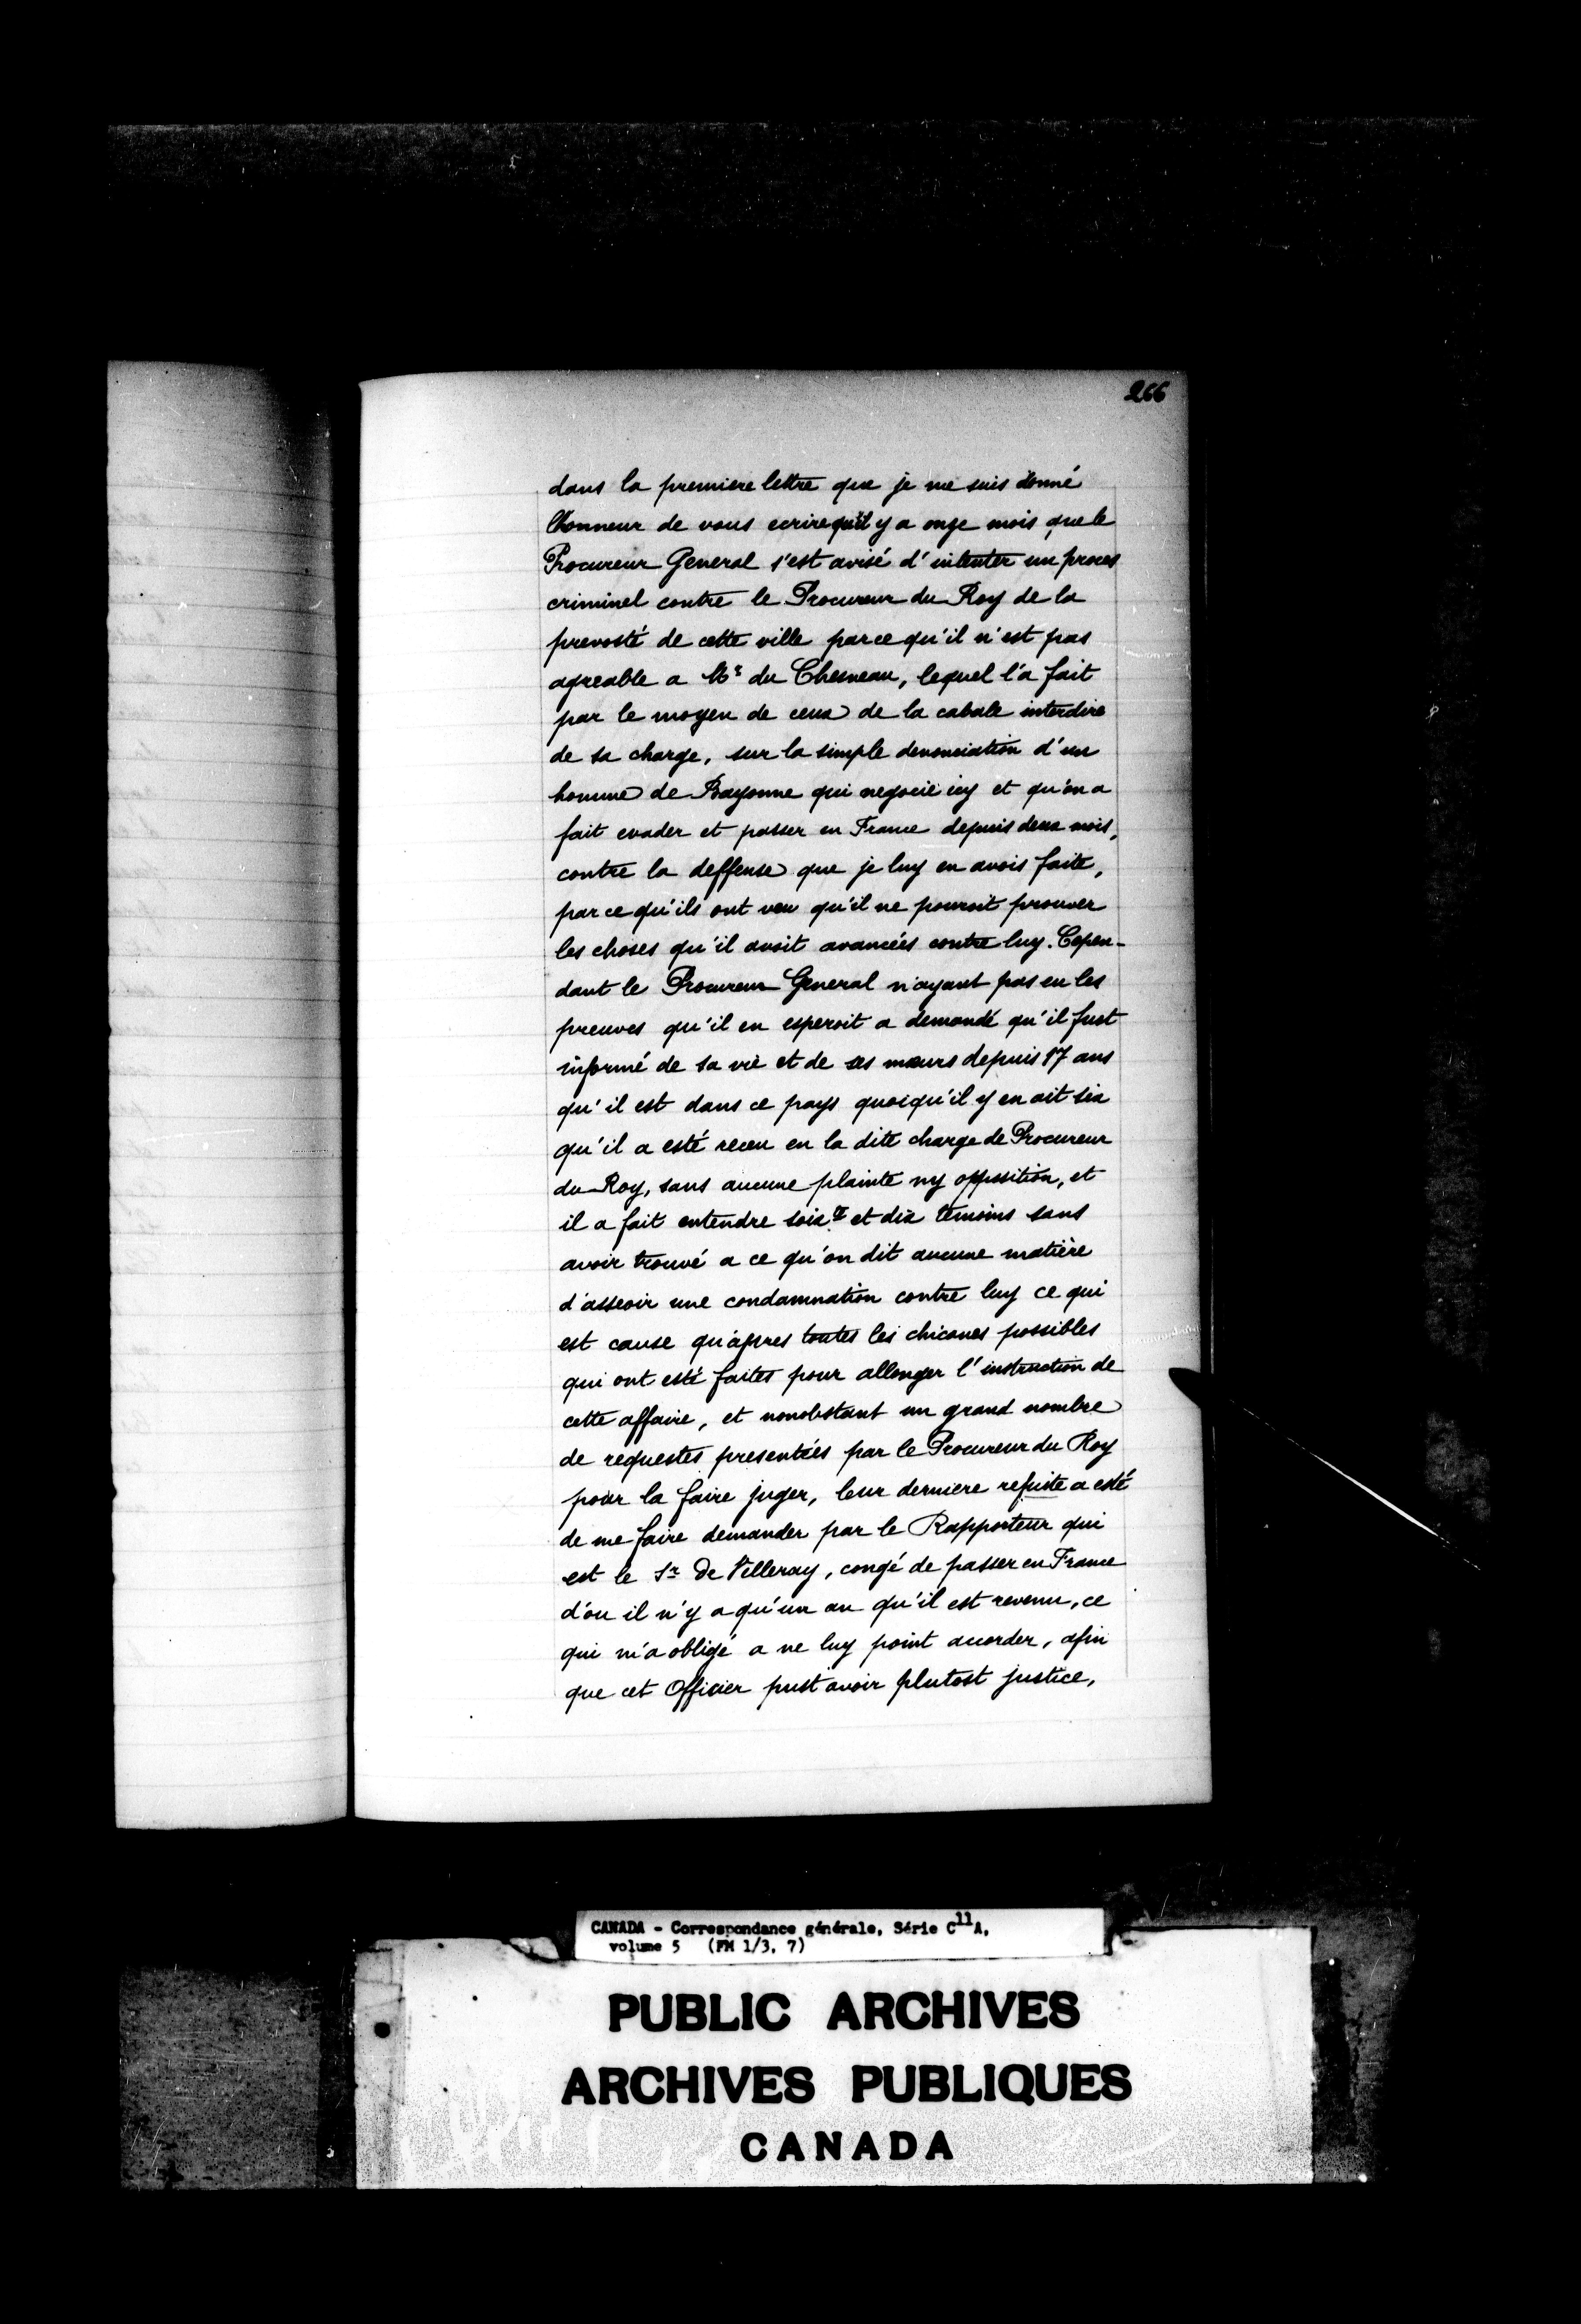 266
dans la premiere lettre que je me suis donné
lhonneur de vous ecrire qu'il y a onze mois que le
Procureur General s'est avisé d'intenter un proces
criminel contre le Procureur du Roy de la
prevosté de cette ville parce qu'il n'est pas
agreable a Mr du Chesneau, lequel l'a fait
par le moyen de ceux de la cabale interdire
de sa charge, sur la simple denonciation d'un
homme de Bayonne qui negocie icy et qu'on a
fait evader et passer en France depuis deux mois,
contre la deffense que je luy en avois faite,
parce qu'ils ont veu qu'il ne pouroit prouver
les choses qu'il avoit avancées contre luy. Cepen-
dant le Procureur General n'ayant pas eu les
preuves qu'il en esperoit a demandé qu'il fust
informé de sa vie et de ses mœurs depuis 17 ans
qu'il est dans ce pays quoiqu'il y en ait six
qu'il a esté receu en la dite charge de Procureur
du Roy, sans aucune plainte ny opposition, et
il a fait entendre soixte et dix temoins sans
avoir trouvé a ce qu'on dit aucune matière
d'asseoir une condamnation contre luy ce qui
est cause qu'apres toutes les chicanes possibles
qui ont esté faites pour allonger l'instruction de
cette affaire, et nonobstant un grand nombre
de requestes presentées par le Procureur du Roy
pour la faire juger, leur derniere refuite a esté
de me faire demander par le Rapporteur qui
est le Sr De Villeray, congé de passer en France
d'ou il n'y a qu'un an qu'il est revenu, ce
qui m'a obligé a ne luy point accorder, afin
que cet Officier pust avoir plutost justice,
CANADA - Correspondance générale, Série C11A,
volume 5 (FM 1/3, 7)
PUBLIC ARCHIVES
ARCHIVES PUBLIQUES
CANADA